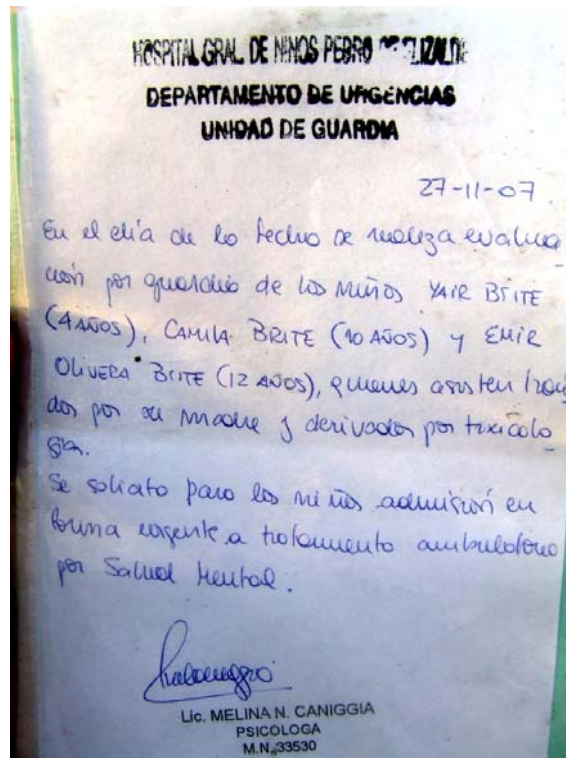 HOSPITAL GRAL. DE NIÑOS PEDRO DE ELIZALDE
DEPARTAMENTO DE URGENCIAS
UNIDAD DE GUARDIA
27-11-07
En el día de la fecha se realiza evalua
ción por guardia de los niños YAIR BRITE
(4 AÑOS), CAMILA BRITE (10 AÑOS) y EMIR
OLIVERA BRITE (12 AÑOS), quienes asisten traí
dos por su madre y derivados por toxicolo
gía.
Se solicita para los niños admisión en
forma urgente a tratamiento ambulatorio
por Salud Mental.
Lic. MELINA N. CANIGGIA
PSICOLOGA
M.N. 33530